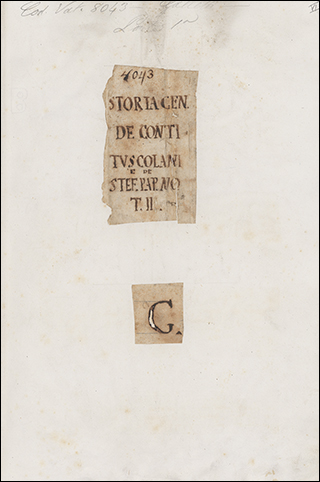 Cod. Vat. 8043
II
4043
STORIA GEN.
DE CONTI
TVSCOLANI
E DE
STEF. PAP. NO
T. II.
G.